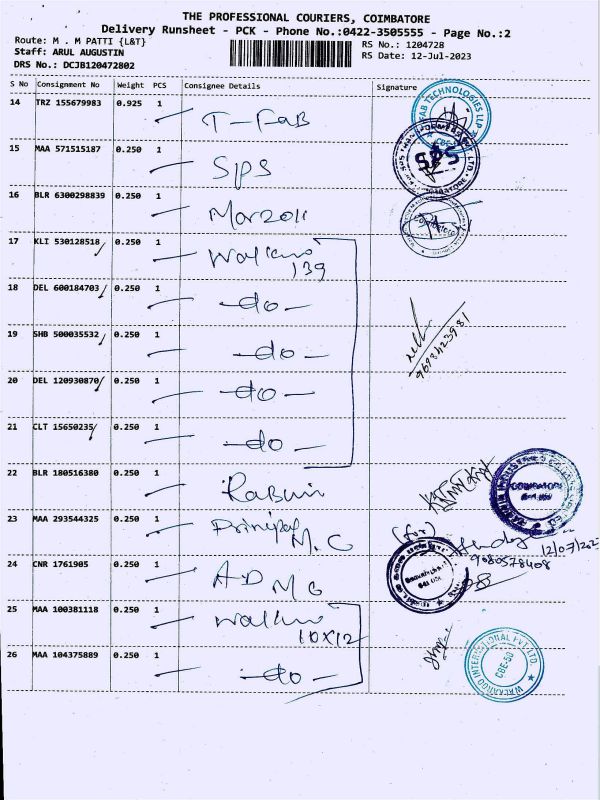 THE PROFESSIONAL COURIERS, COIMBATORE
Delivery Runsheet - PCK - Phone No.:0422-3505555 - Page No.:2
Route: M . M PATTI {L&T}
RS No.: 1204728
Staff: ARUL AUGUSTIN
RS Date: 12-Jul-2023
DRS No.: DCJB120472802
S No Consignment No Weight PCS Consignee Details Signature
14 TRZ 155679983 0.925 1 T-FaB
15 MAA 571515187 0.250 1 SPS
16 BLR 6300298839 0.250 1
17 KLI 530128518 0.250 1 139
18 DEL 600184703 0.250 1 -do-
19 SHB 500035532 0.250 1 -do-
9698423981
20 DEL 120930870 0.250 1 -do-
21 CLT 15650235 0.250 1 -do-
22 BLR 180516380 0.250 1
COIMBATORE
23 MAA 293544325 0.250 1 M.C
(for)
12/07/202
9080578408
24 CNR 1761905 0.250 1 AD MC
25 MAA 100381118 0.250 1 10x12
26 MAA 104375889 0.250 1 -do-
CBE-50